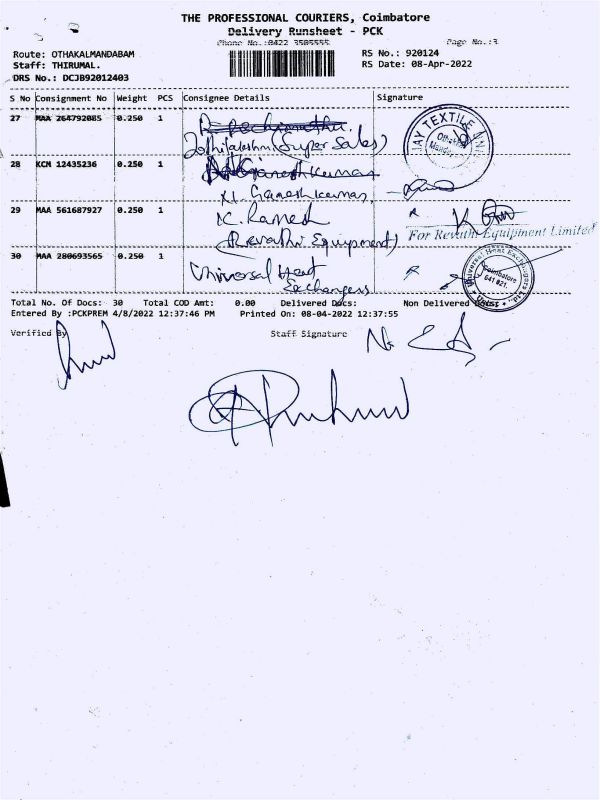 THE PROFESSIONAL COURIERS, Coimbatore
Delivery Runsheet - PCK
Phone No.:0422 3505555
Page No.:3
Route: OTHAKALMANDABAM
RS No.: 920124
Staff: THIRUMAL.
RS Date: 08-Apr-2022
DRS No.: DCJB92012403
S No Consignment No Weight PCS Consignee Details Signature
27 MAA 264792085 0.250 1
(Super Sales)
JAY TEXTILE UNIT
28 KCM 12435236 0.250 1 Ganesh Kumar
Ganesh Kumar
29 MAA 561687927 0.250 1 K. Ramesh
(Revathi Equipment)
For Revathi Equipment Limited
30 MAA 280693565 0.250 1 Universal Heat
Exchangers
Universal Heat Exchangers Ltd.
Coimbatore
641 021.
Total No. Of Docs: 30 Total COD Amt: 0.00 Delivered Docs: Non Delivered
Entered By :PCKPREM 4/8/2022 12:37:46 PM Printed On: 08-04-2022 12:37:55
Verified By Staff Signature